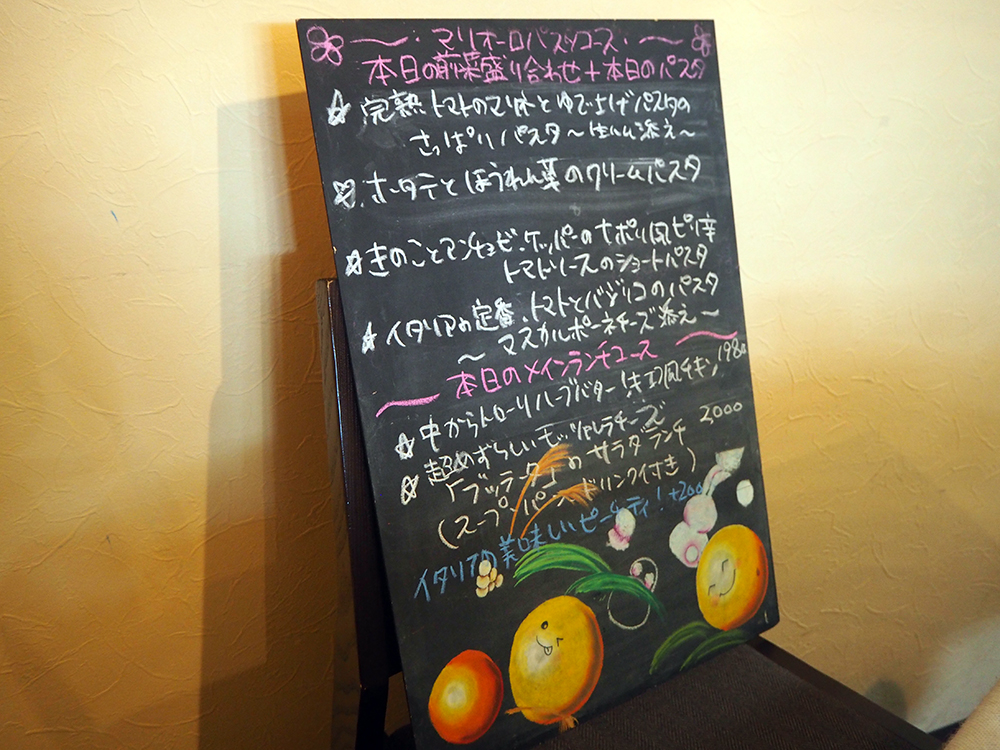 マリオーロパスタコース
本日の前菜盛り合わせ+本日のパスタ
完熟トマトのマリネとゆで上げパスタの
さっぱりパスタ〜生ハム添え〜
ホタテとほうれん草のクリームパスタ
きのことアンチョビ、ケッパーのナポリ風ピリ辛
トマトソースのショートパスタ
イタリアの定番、トマトとバジリコのパスタ
〜マスカルポーネチーズ添え〜
本日のメインランチコース
中からトローリハーブバター!キエフ風チキン
超めずらしいモッツァレラチーズ
「ブッラータ」のサラダランチ 2000
(スープ・パン・ドリンク付き)
イタリアの美味しいピーチティ!+200